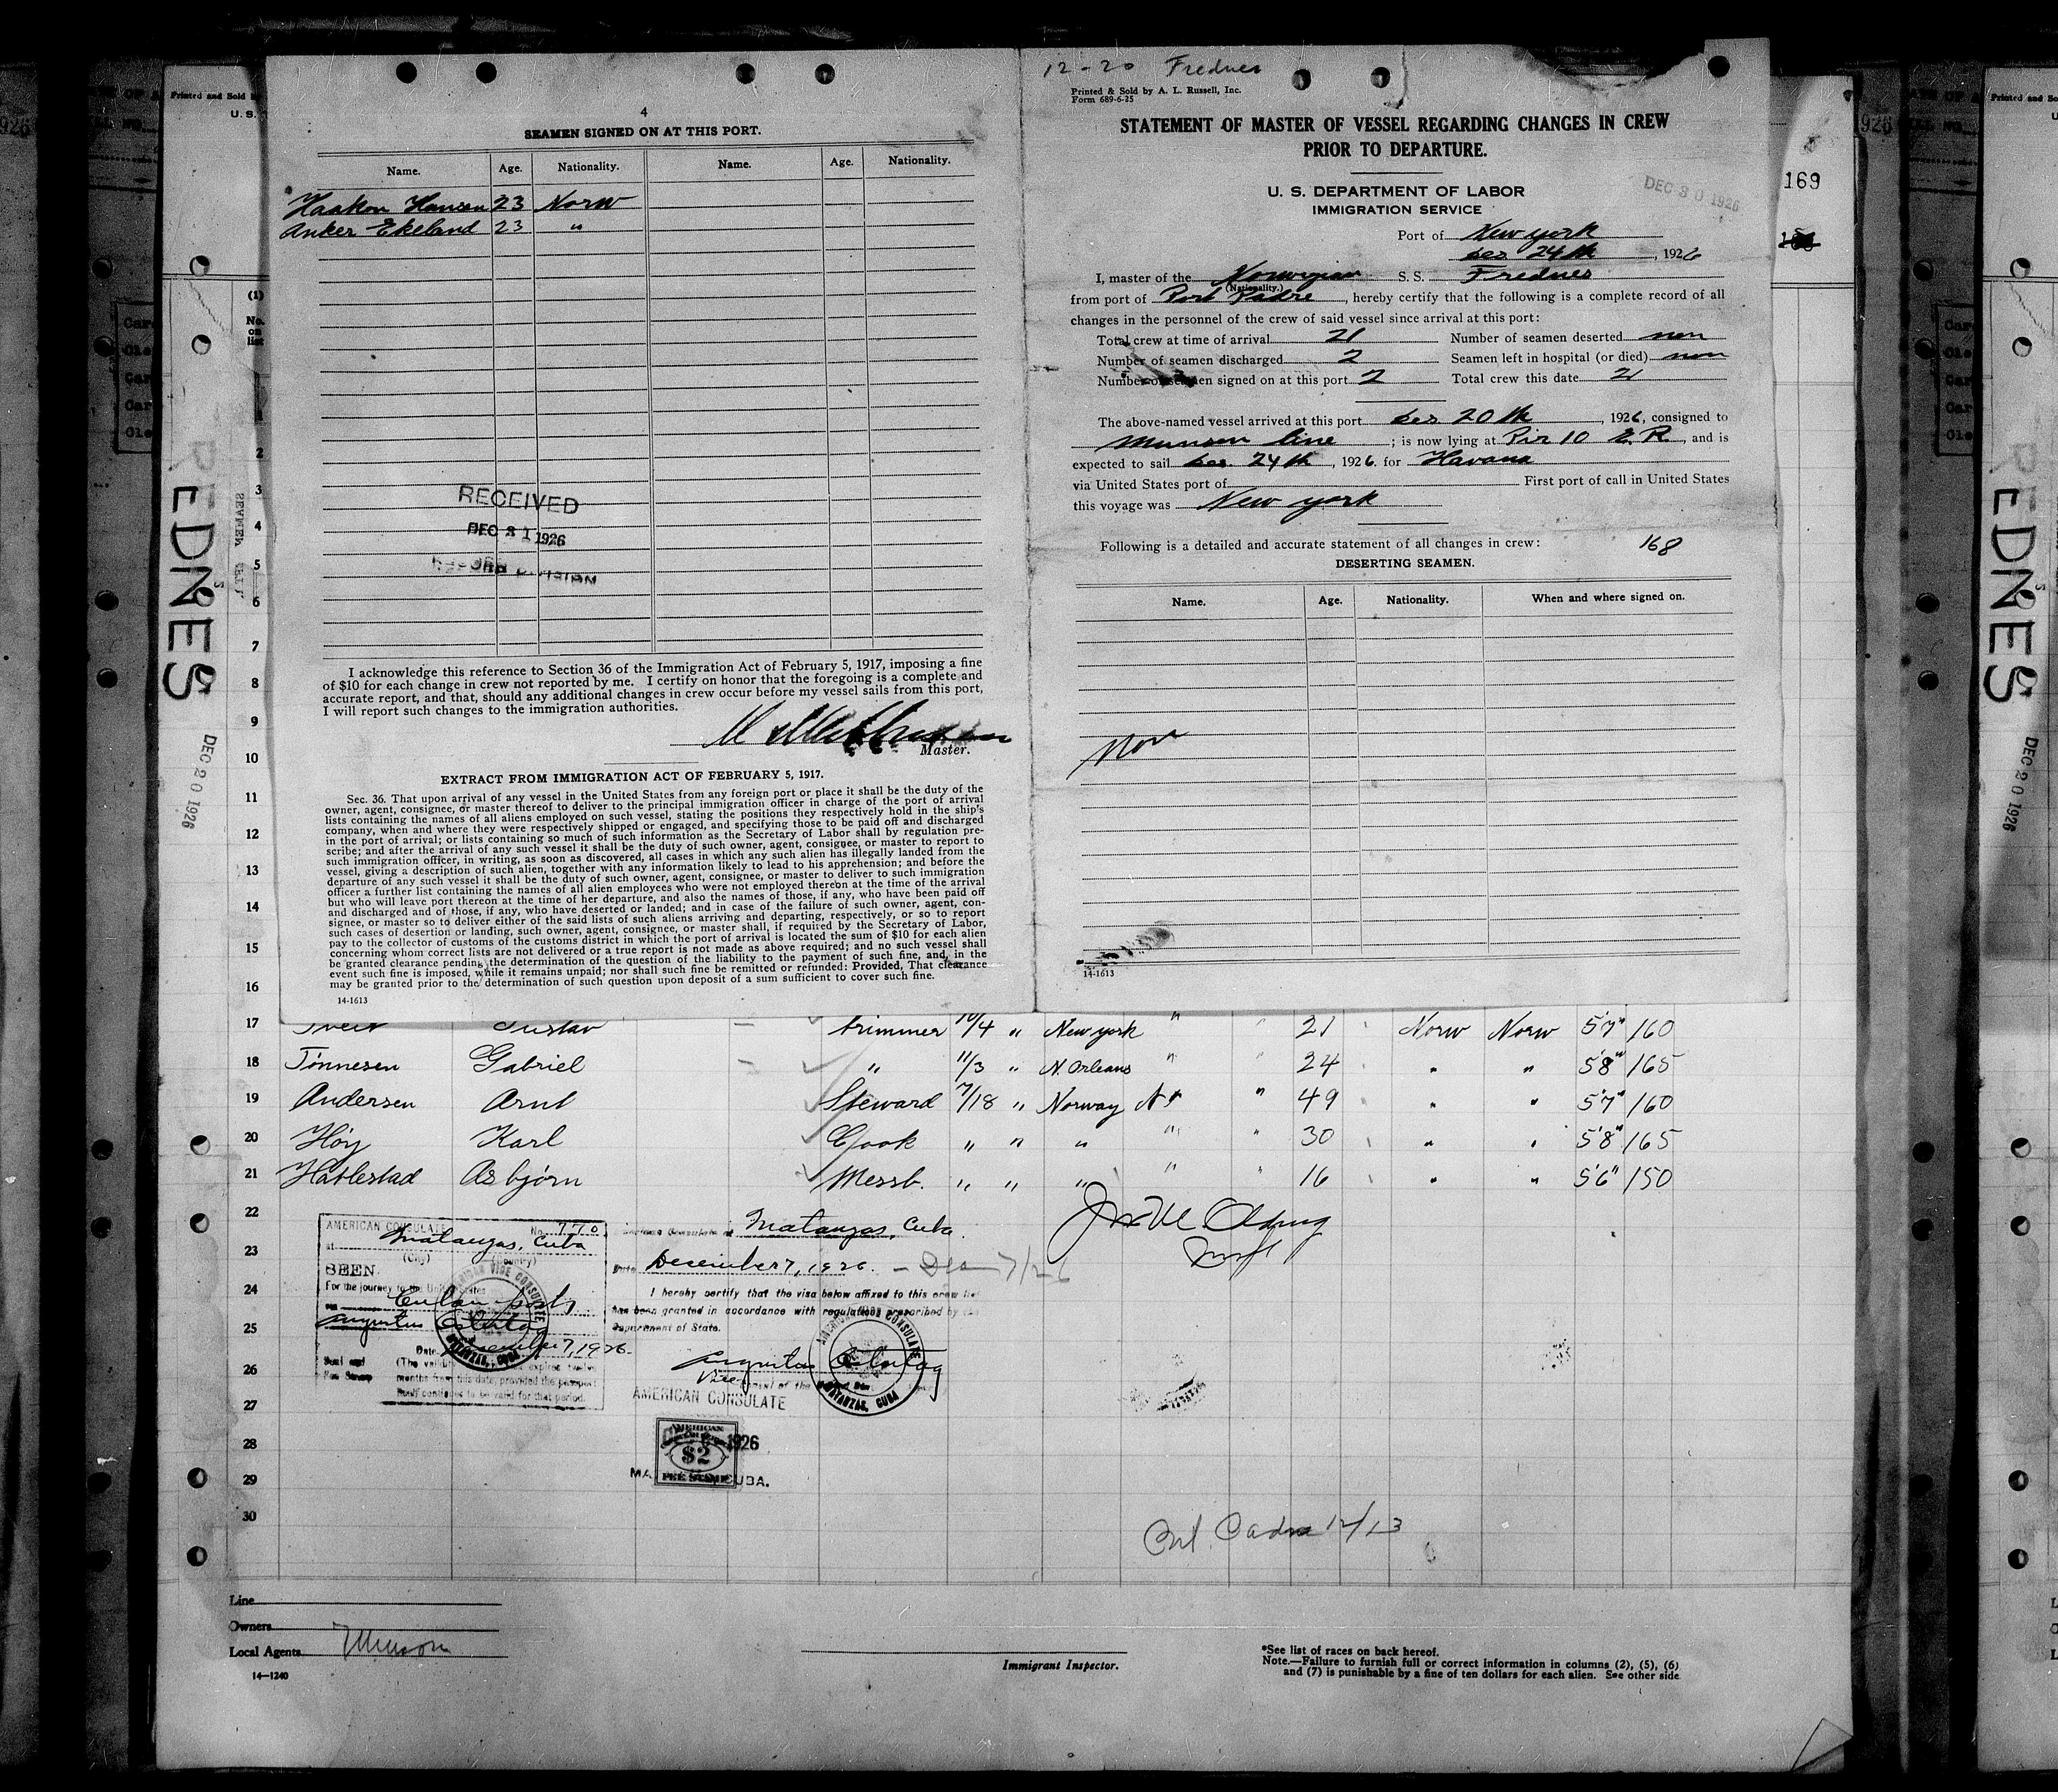 4
SEAMEN SIGNED ON AT THIS PORT.
Name. Age. Nationality. Name. Age. Nationality.
Haakon Hansen 23 Norw
Anker Ekeland 23 "
RECEIVED
DEC 31 1926
RECORD DIVISION
I acknowledge this reference to Section 36 of the Immigration Act of February 5, 1917, imposing a fine
of $10 for each change in crew not reported by me. I certify on honor that the foregoing is a complete and
accurate report, and that, should any additional changes in crew occur before my vessel sails from this port,
I will report such changes to the immigration authorities.
Master.
EXTRACT FROM IMMIGRATION ACT OF FEBRUARY 5, 1917.
Sec. 36. That upon arrival of any vessel in the United States from any foreign port or place it shall be the duty of the
owner, agent, consignee, or master thereof to deliver to the principal immigration officer in charge of the port of arrival
lists containing the names of all aliens employed on such vessel, stating the positions they respectively hold in the ship's
company, when and where they were respectively shipped or engaged, and specifying those to be paid off and discharged
in the port of arrival; or lists containing so much of such information as the Secretary of Labor shall by regulation pre-
scribe; and after the arrival of any such vessel it shall be the duty of such owner, agent, consignee, or master to report to
such immigration officer, in writing, as soon as discovered, all cases in which any such alien has illegally landed from the
vessel, giving a description of such alien, together with any information likely to lead to his apprehension; and before the
departure of any such vessel it shall be the duty of such owner, agent, consignee, or master to deliver to such immigration
officer a further list containing the names of all alien employees who were not employed thereon at the time of the arrival
but who will leave port thereon at the time of her departure, and also the names of those, if any, who have been paid off
and discharged and of those, if any, who have deserted or landed; and in case of the failure of such owner, agent, con-
signee, or master so to deliver either of the said lists of such aliens arriving and departing, respectively, or so to report
such cases of desertion or landing, such owner, agent, consignee, or master shall, if required by the Secretary of Labor,
pay to the collector of customs of the customs district in which the port of arrival is located the sum of $10 for each alien
concerning whom correct lists are not delivered or a true report is not made as above required; and no such vessel shall
be granted clearance pending the determination of the question of the liability to the payment of such fine, and, in the
event such fine is imposed, while it remains unpaid; nor shall such fine be remitted or refunded: Provided, That clearance
may be granted prior to the determination of such question upon deposit of a sum sufficient to cover such fine.
14-1613
12-20 Frednes
Printed & Sold by A. L. Russell, Inc.
Form 689-6-25
STATEMENT OF MASTER OF VESSEL REGARDING CHANGES IN CREW
PRIOR TO DEPARTURE.
U. S. DEPARTMENT OF LABOR
IMMIGRATION SERVICE
DEC 30 1926
Port of New york
Des 24th, 1926
I, master of the Norwegian S. S. Frednes
(Nationality.)
from port of Port Padre, hereby certify that the following is a complete record of all
changes in the personnel of the crew of said vessel since arrival at this port:
Total crew at time of arrival 21 Number of seamen deserted non
Number of seamen discharged 2 Seamen left in hospital (or died) non
Number of seamen signed on at this port 2 Total crew this date 21
The above-named vessel arrived at this port Des 20th, 1926, consigned to
Munson line; is now lying at Pir 10 E. R., and is
expected to sail Des. 24th, 1926. for Havana
via United States port of First port of call in United States
this voyage was New york
Following is a detailed and accurate statement of all changes in crew: 168
DESERTING SEAMEN.
Name. Age. Nationality. When and where signed on.
Non
14-1613
169
Printed and Sold
U. S.
(1)
No.
on
list
REDNES
DEC 20 1926
2
3
4
5
6
7
8
9
10
11
12
13
14
15
16
17 Gustav trimmer 10/4 " New york " 21 Norw Norw 5'7" 160
18 Tønnesen Gabriel " 11/3 " N. Orleans " " 24 " " 5'8" 165
19 Andersen Arnt Steward 7/18 " Norway " 49 " " 5'7" 160
20 Høy Karl Cook " " " " " 30 " " 5'8" 165
21 Hatlestad Asbjørn Messb. " " " " " 16 " " 5'6" 150
22
23
24
25
26
27
28
29
30
AMERICAN CONSULATE No. 770
at Matanzas, Cuba
(City) (Country)
SEEN
For the journey to the United States
Cuban ports
Augustus Ostertag
Date December 7, 1926.
Seal and
Fee Stamp
(The validity expires twelve
months from this date, provided the passport
itself continues to be valid for that period.
American Consulate at Matanzas, Cuba.
Date December 7, 1926.
I hereby certify that the visa below affixed to this crew list
has been granted in accordance with regulations prescribed by the
Department of State.
Augustus Ostertag
Vice Consul of the
AMERICAN VICE CONSULATE
MATANZAS, CUBA
AMERICAN CONSULATE
AMERICAN
$2
FEE STAMP
1926
MA CUBA.
12/13
Line
Owners
Local Agents Munson
14—1240
Immigrant Inspector.
*See list of races on back hereof.
Note.—Failure to furnish full or correct information in columns (2), (5), (6)
and (7) is punishable by a fine of ten dollars for each alien. See other side
REDNES
DEC 20 1926